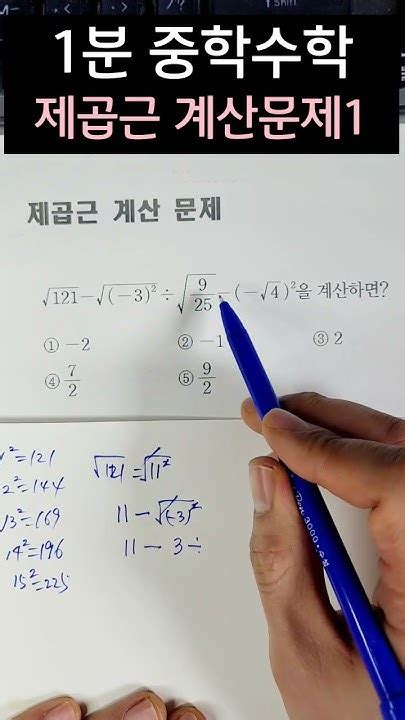 1분 중학수학
제곱근 계산문제1
제곱근 계산 문제
√121−√(−3)² ÷ √9/25 − (−√4)²을 계산하면?
① −2 ② −1 ③ 2
④ 7/2 ⑤ 9/2
²=121
2²=144
13²=169
14²=196
15²=225
√121=√11²
11−√(−3)²
11−3÷